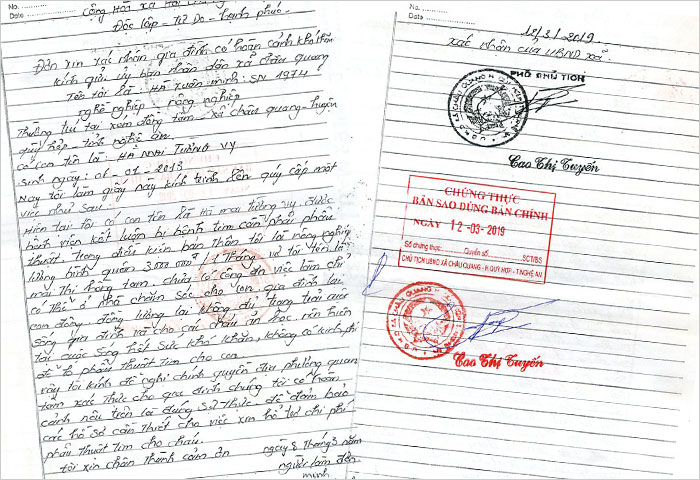 No.
Date
Cộng Hòa xã Hội
Độc lập - Tự Do - Hạnh phúc
Đơn xin xác nhận gia đình có hoàn cảnh khó khăn
Kính gửi: ủy ban nhân dân xã Châu quang
Tên tôi là: Hà xuân minh: SN 1974
nghề nghiệp: nông nghiệp
Thường trú tại xóm đồng tâm - xã châu quang - huyện
quỳ hợp - tỉnh nghệ an.
có con tên là: HÀ MAI TƯỜNG VY
Sinh ngày: 01 - 01 - 2013
Nay tôi làm giấy này kính trình lên quý cấp một
việc như sau:
Hiện tại: Tôi có con tên là Hà mai tường vy. được
bệnh viện kết luận bị bệnh tim cần phải phẫu
thuật. Trong điều kiện bản thân tôi là nông nghiệp
lương bình quân 3000.000đ/1 tháng vợ tôi tên là
mai Thị hồng tam, chưa có công ăn việc làm chỉ
có thể ở nhà chăm sóc cho con gia đình lại
con đông, đồng lương lại không đủ trang trải cuộc
sống gia đình và cho các cháu ăn học, nên hiện
tại cuộc sống hết sức khó khăn, không có kinh phí
để phẫu thuật tim cho con.
vậy tôi kính đề nghị chính quyền địa phương quan
tâm xác thực cho gia đình chúng tôi có hoàn
cảnh nêu trên là đúng sự thực để đảm bảo
các hồ sơ cần thiết cho việc xin hỗ trợ chi phí
phẫu thuật tim cho cháu.
tôi xin chân thành cảm ơn
ngày 8 tháng 3 năm
người làm đơn
minh
No.
Date
12/3/2019
xác nhận của UBND xã.
PHÓ CHỦ TỊCH
Cao Thị Tuyến
CHỨNG THỰC
BẢN SAO DÙNG BẢN CHÍNH
NGÀY 12-03-2019
Số chứng thực Quyển số SCT/BS
CHỦ TỊCH UBND XÃ CHÂU QUANG - H. QUỲ HỢP - T. NGHỆ AN
Cao Thị Tuyến